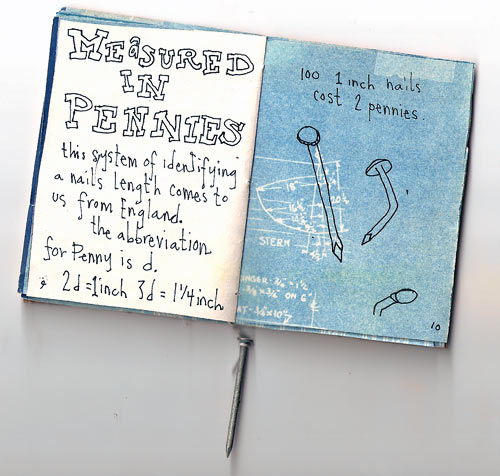 MEASURED
IN
PENNIES
this system of identifying
a nails length comes to
us from England.
the abbreviation
for Penny is d.
2d = 1 inch 3d = 1 1/4 inch
100 1 inch nails
cost 2 pennies.
18"
STERN
10